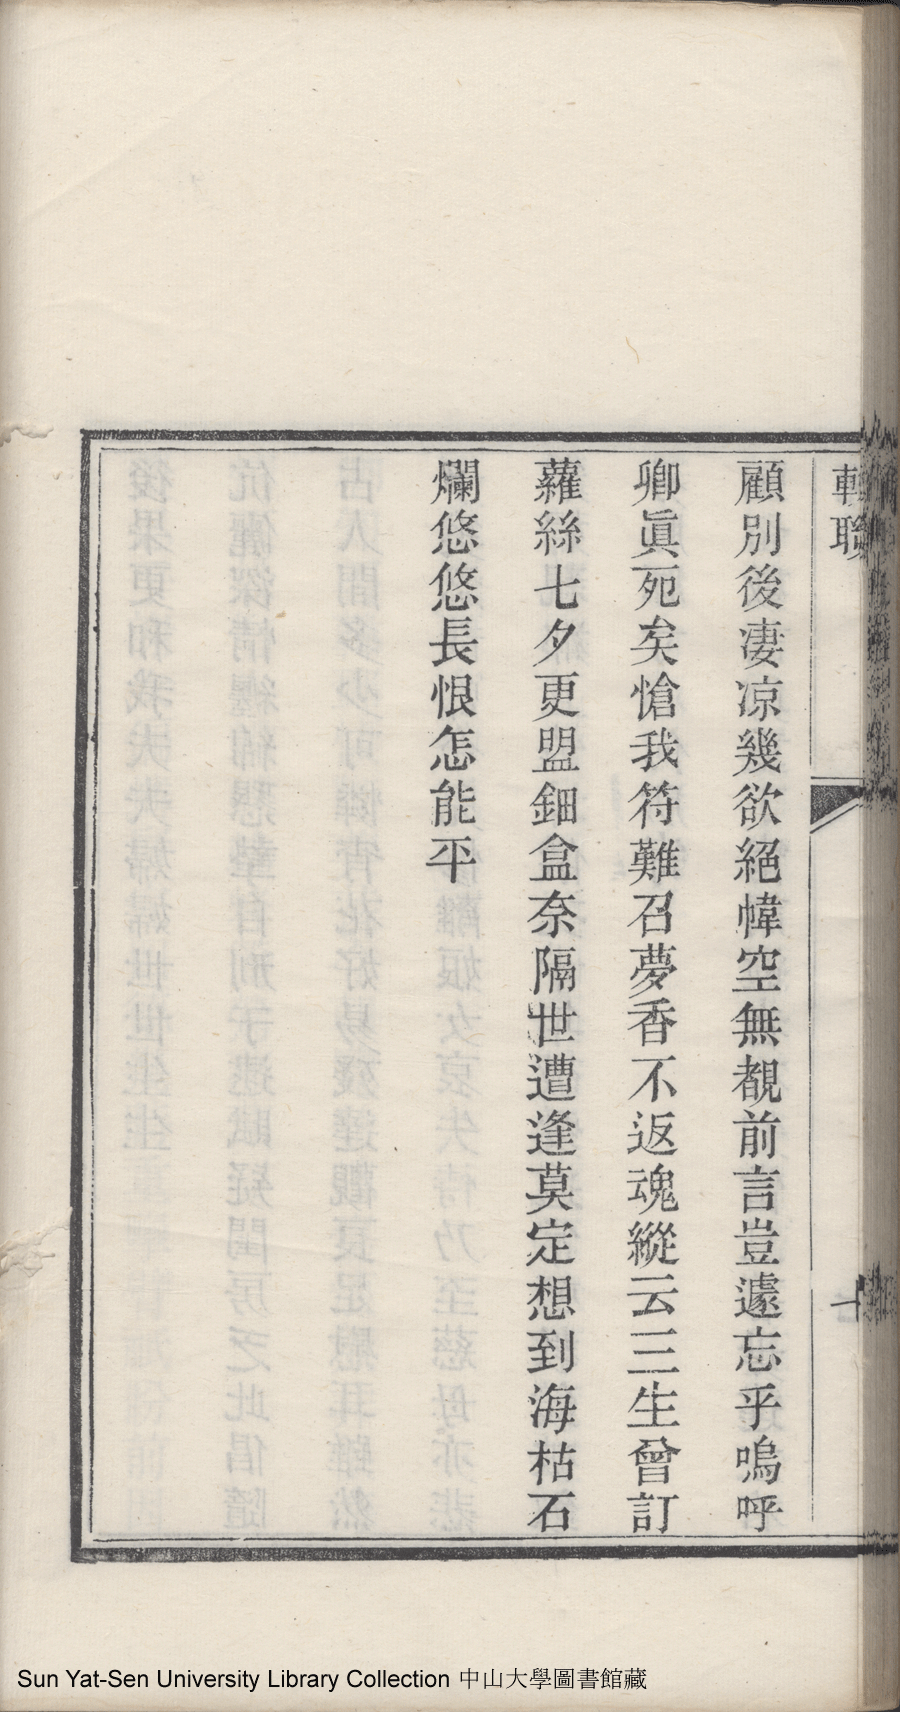 輓聯
顧別後凄凉幾欲絕幃空無覩前言豈遽忘乎嗚呼
卿眞死矣愴我符難召夢香不返魂縱云三生曾訂
蘿絲七夕更盟鈿盒奈隔世遭逢莫定想到海枯石
爛悠悠長恨怎能平
Sun Yat-Sen University Library Collection 中山大學圖書館藏